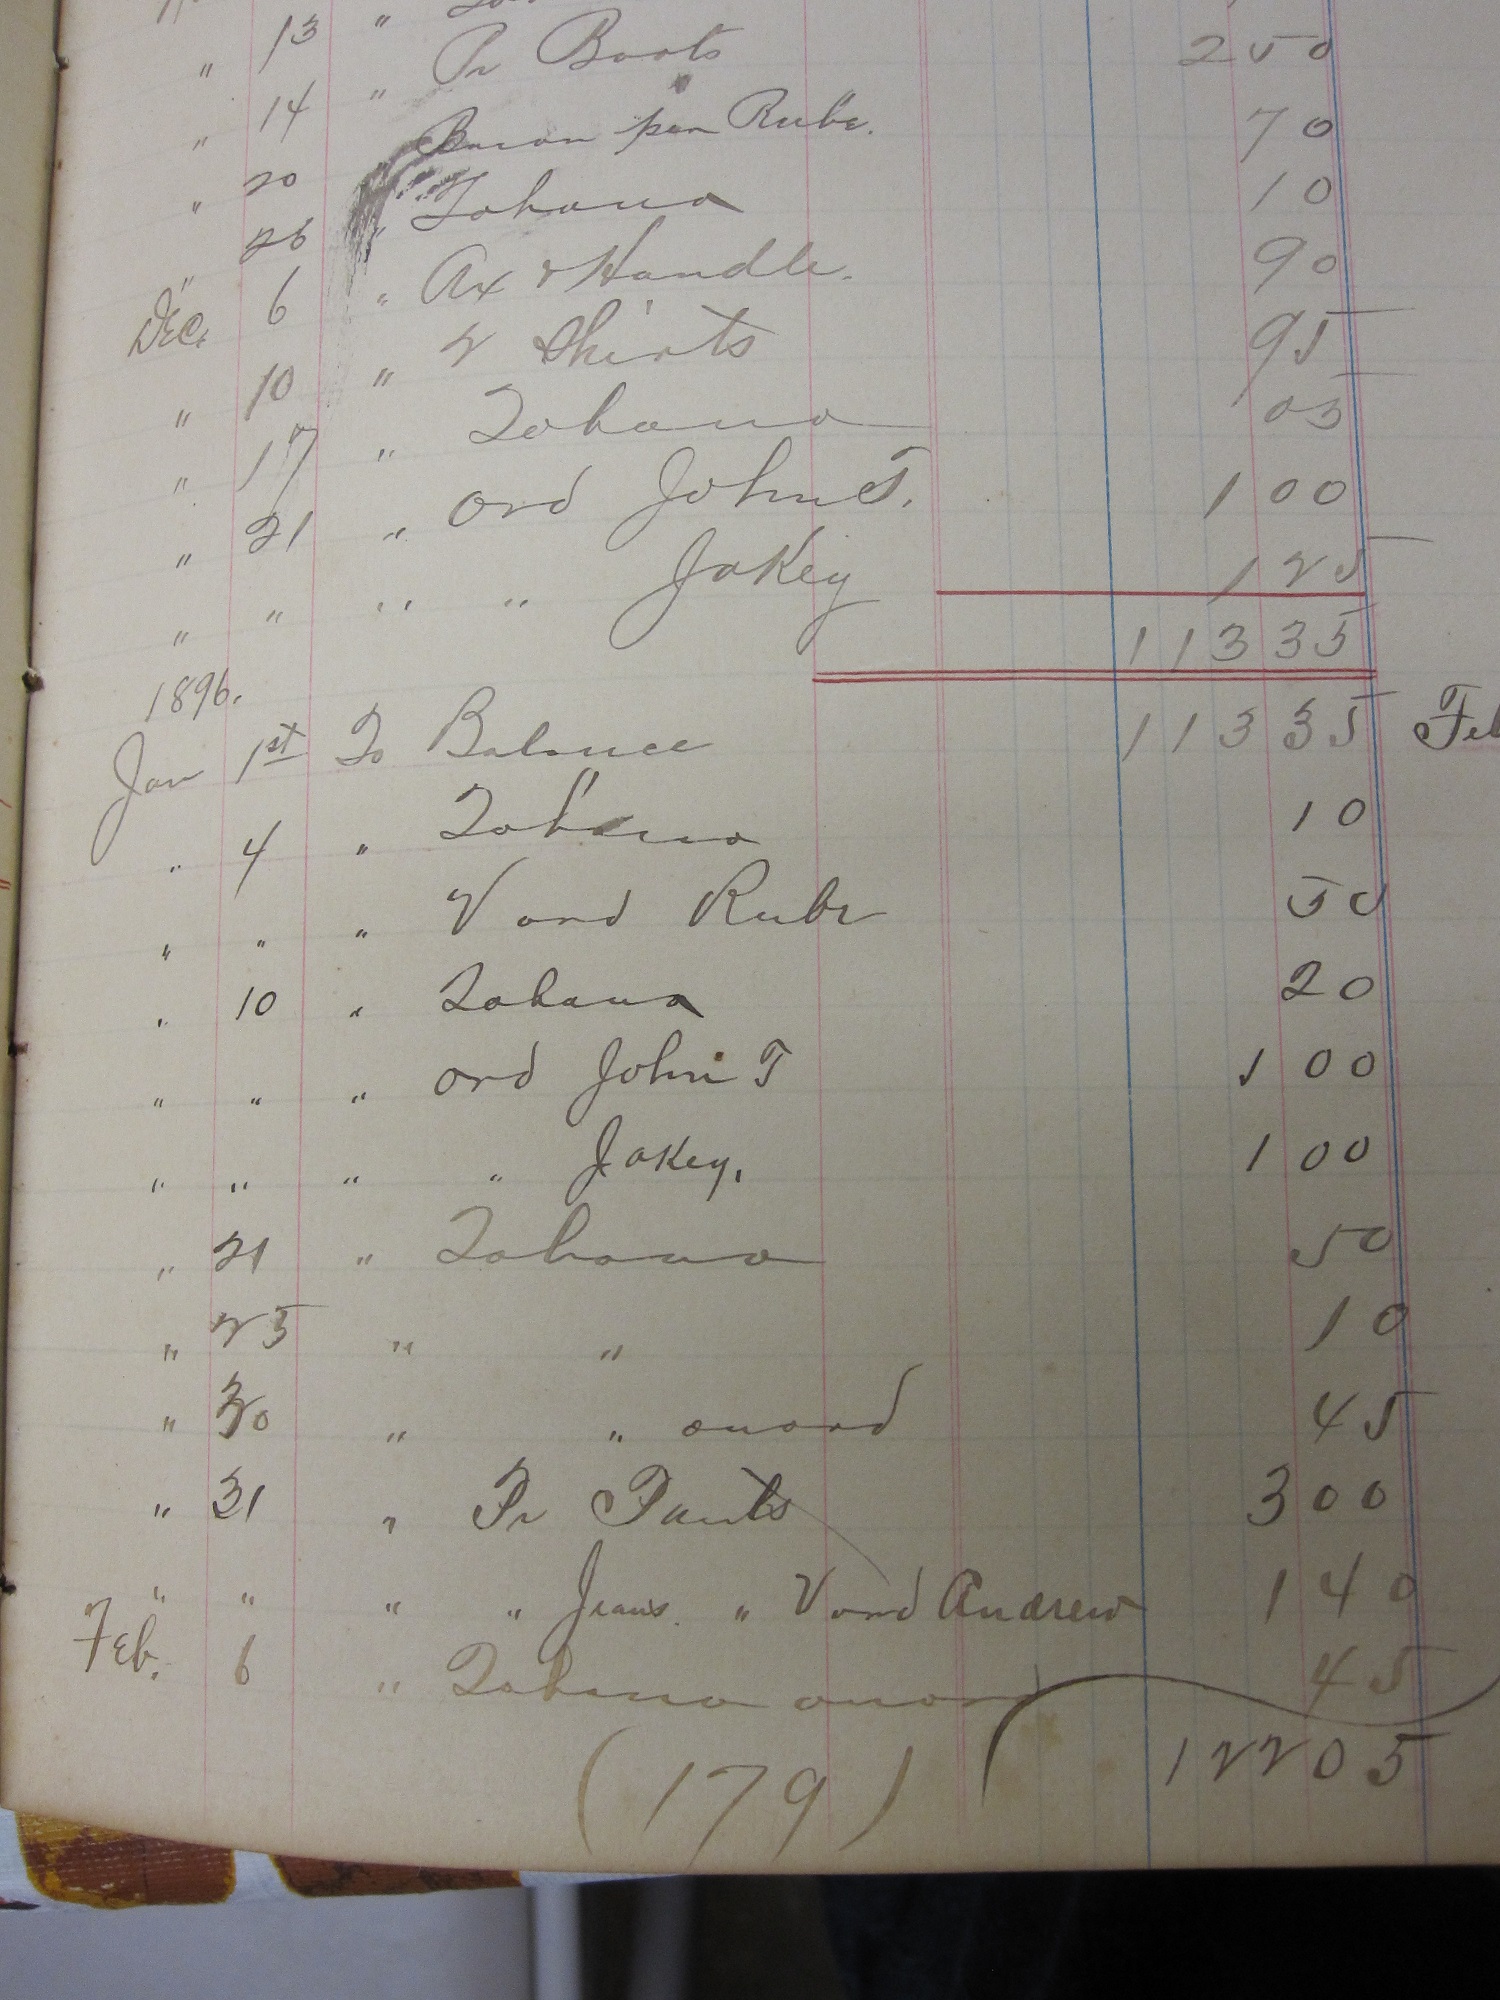 " 13 " Pr Boots 2 50
" 14 " Bacon per Rube. 70
" 20 " Tobacco 10
" 26 " Ax & Handle. 90
Dec. 6 " 2 Shirts 95
" 10 " Tobacco 05
" 17 " ord John T. 1 00
" 21 " " Jakey 1 25
" " " " 113 35
1896.
Jan 1st To Balance 113 35 Feb
" 4 " Tobacco 10
" " " V ord Rube 50
" 10 " Tobacco 20
" " " ord John T 1 00
" " " " Jakey, 1 00
" 21 " Tobacco 50
" 25 " " 10
" 30 " " on ord 45
" 31 " Pr Pants 3 00
" " " " Jeans " V ord Andrew 1 40
Feb. 6 " Tobacco on ord 45
(179) 122 05